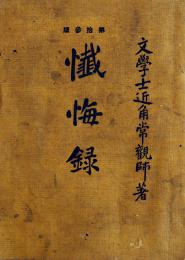 文學士近角常觀師著
懺悔録
第拾參版